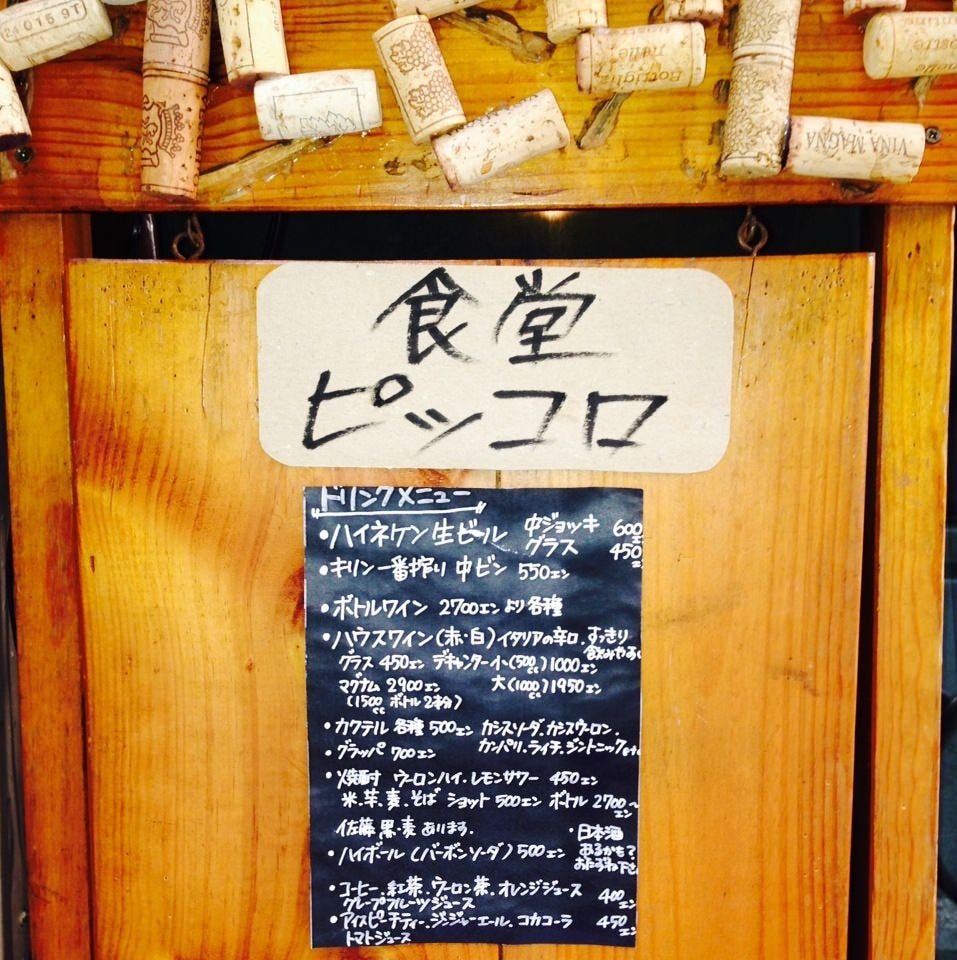 24 015 9T
VINA MAGNA
食堂
ピッコロ
ドリンクメニュー
・ハイネケン生ビール 中ジョッキ 600エン
グラス 450エン
・キリン一番搾り 中ビン 550エン
・ボトルワイン 2700エンより各種
・ハウスワイン(赤・白)イタリアの辛口、すっきり
飲みやすい
グラス 450エン デキャンター小(500cc)1000エン
マグナム 2900エン 大(1000cc)1950エン
(1500cc ボトル2本分)
・カクテル 各種 500エン カシスソーダ、カシスウーロン、
・グラッパ 700エン カンパリ、ライチ、ジントニック
・焼酎 ウーロンハイ、レモンサワー 450エン
米、芋、麦、そば ショット 500エン ボトル 2700〜エン
佐藤 黒・麦 あります。
・日本酒
あるかも?
おたずね下さい
・ハイボール(バーボンソーダ)500エン
・コーヒー、紅茶、ウーロン茶、オレンジジュース
グレープフルーツジュース 400エン
・アイスピーチティー、ジンジャーエール、コカコーラ 450エン
トマトジュース